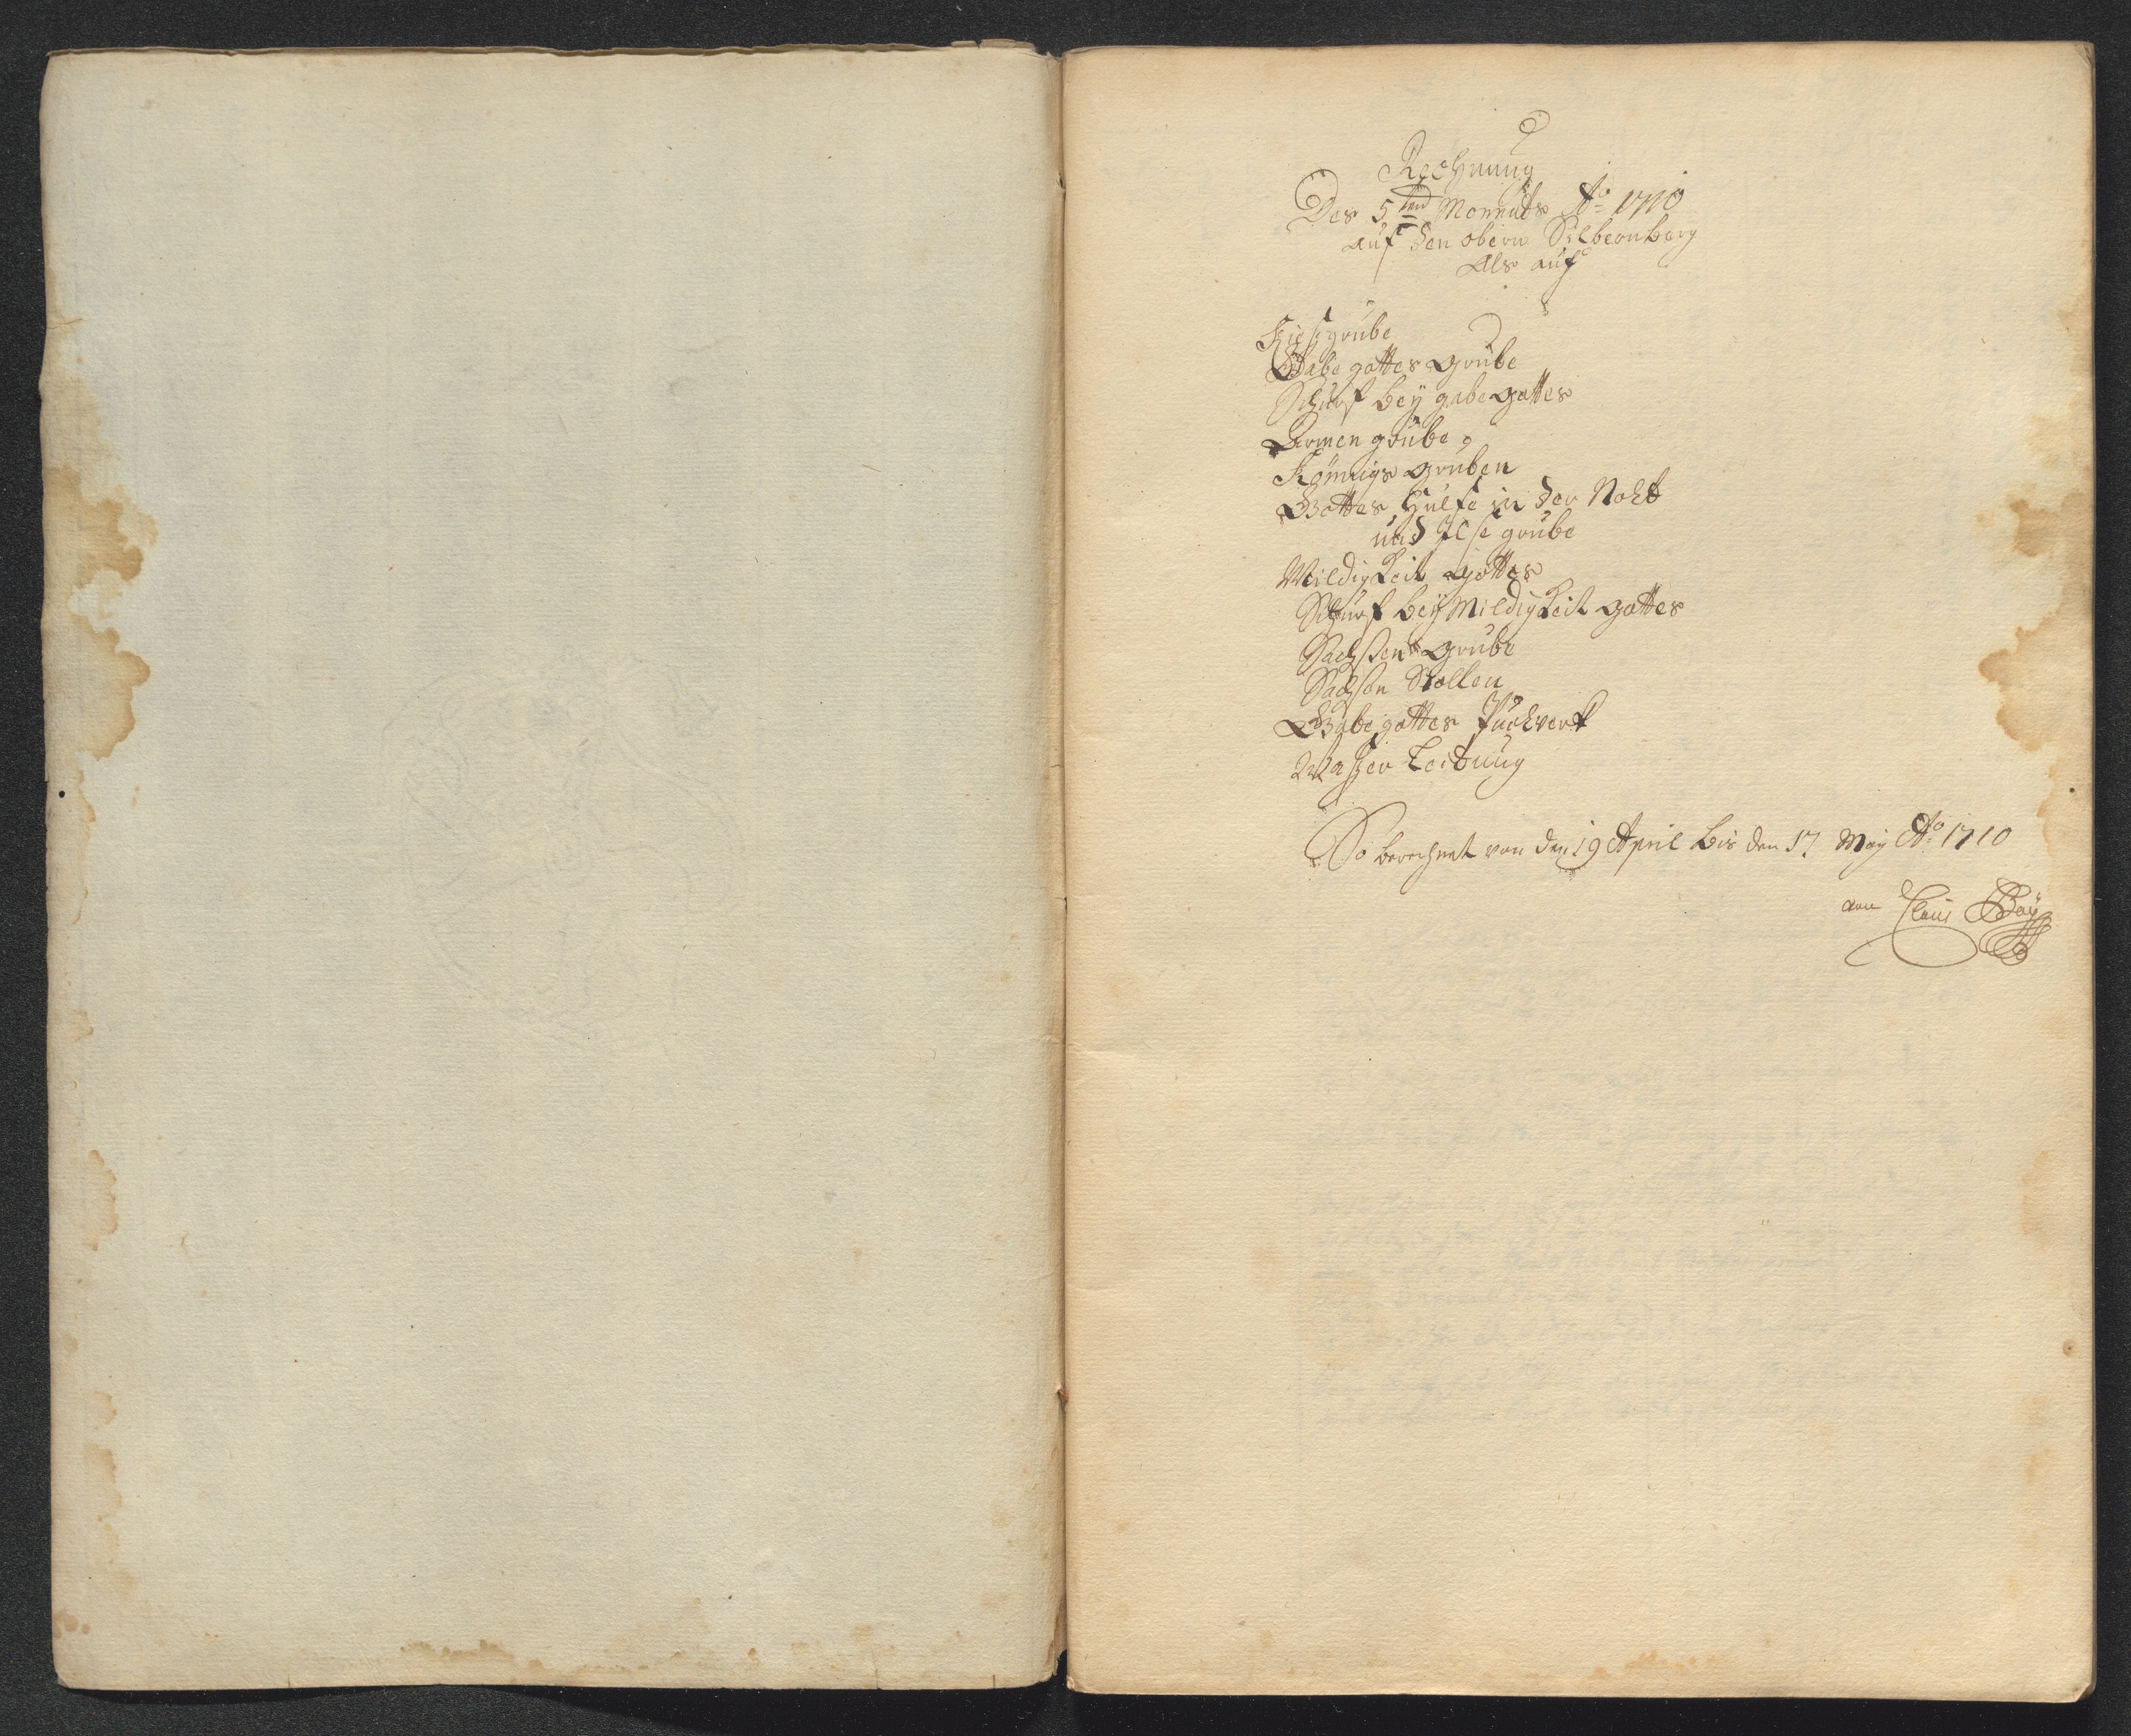 Rechnung
Des 5ten Monnats Ao 1710
auf den obern Silbernberg
Als auf
Kießgrube
Gabe gottes Grube
Schurf bey gabe Gottes
Armen grube
Könnigs Gruben
Gottes Hülfe in der Noht
und grube
Mildigkeit Gottes
Schurf bey Mildigkeit Gottes
Sachsen Grube
Sachsen Stollen
Gabe gottes Puchwerk
Waßer Leitung
So berechnet von den 19 April bis den 17 May Ao 1710
von Claus Bay